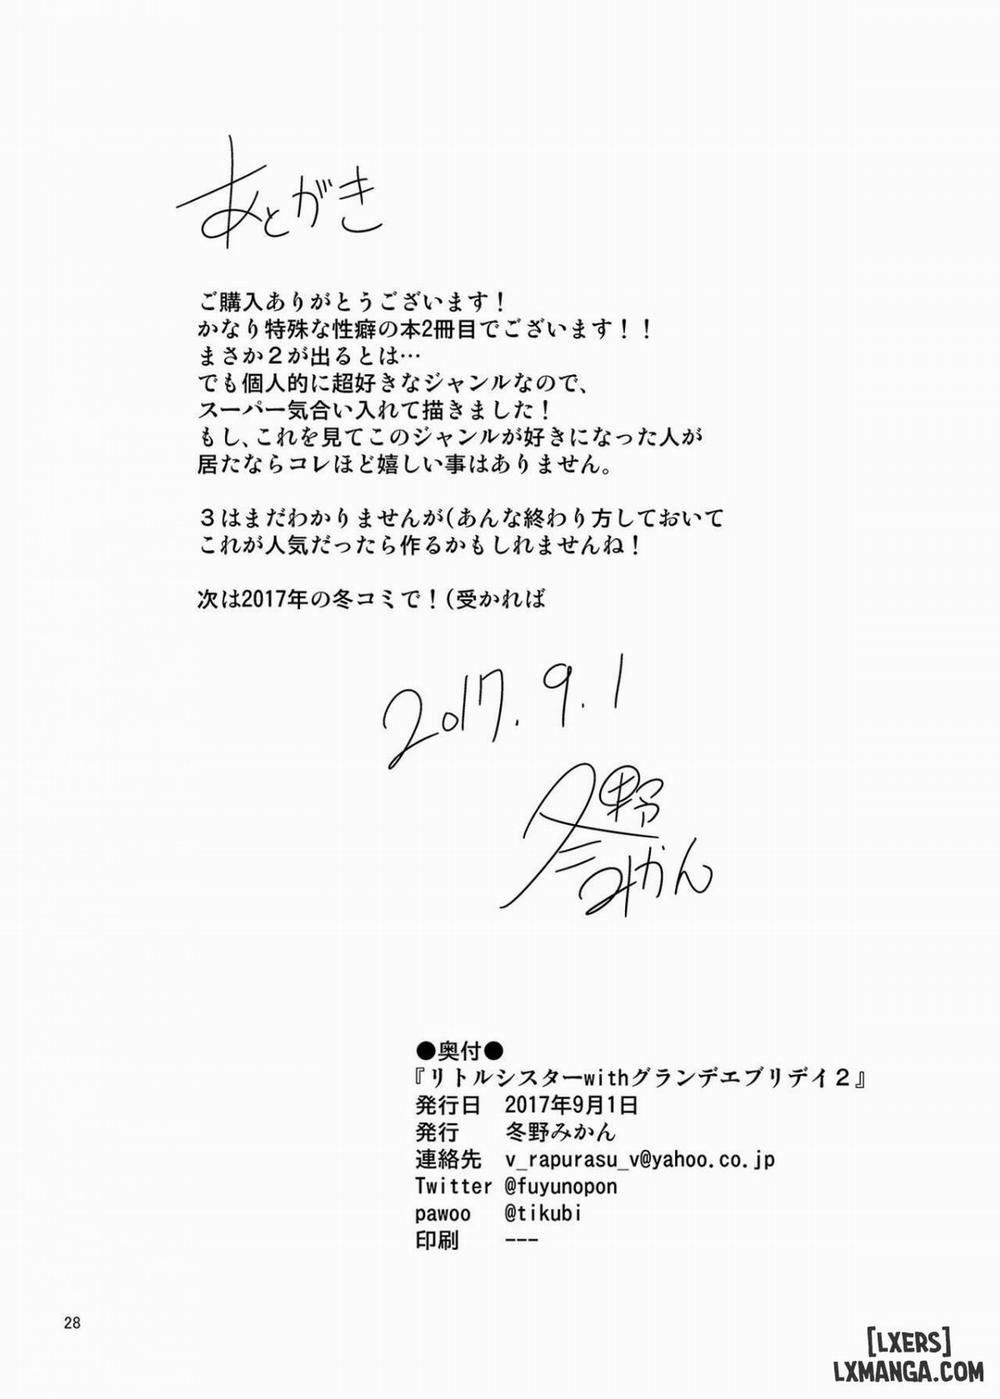 あとがき
ご購入ありがとうございます！
かなり特殊な性癖の本2冊目でございます！！
まさか２が出るとは…
でも個人的に超好きなジャンルなので、
スーパー気合い入れて描きました！
もし、これを見てこのジャンルが好きになった人が
居たならコレほど嬉しい事はありません。
３はまだわかりませんが(あんな終わり方しておいて
これが人気だったら作るかもしれませんね！
次は2017年の冬コミで！(受かれば
2017.9.1
冬野
みかん
●奥付●
『リトルシスターwithグランデエブリデイ２』
発行日 2017年9月1日
発行 冬野みかん
連絡先 v_rapurasu_v@yahoo.co.jp
Twitter @fuyunopon
pawoo @tikubi
印刷 ---
28
[LXERS]
LXMANGA.COM